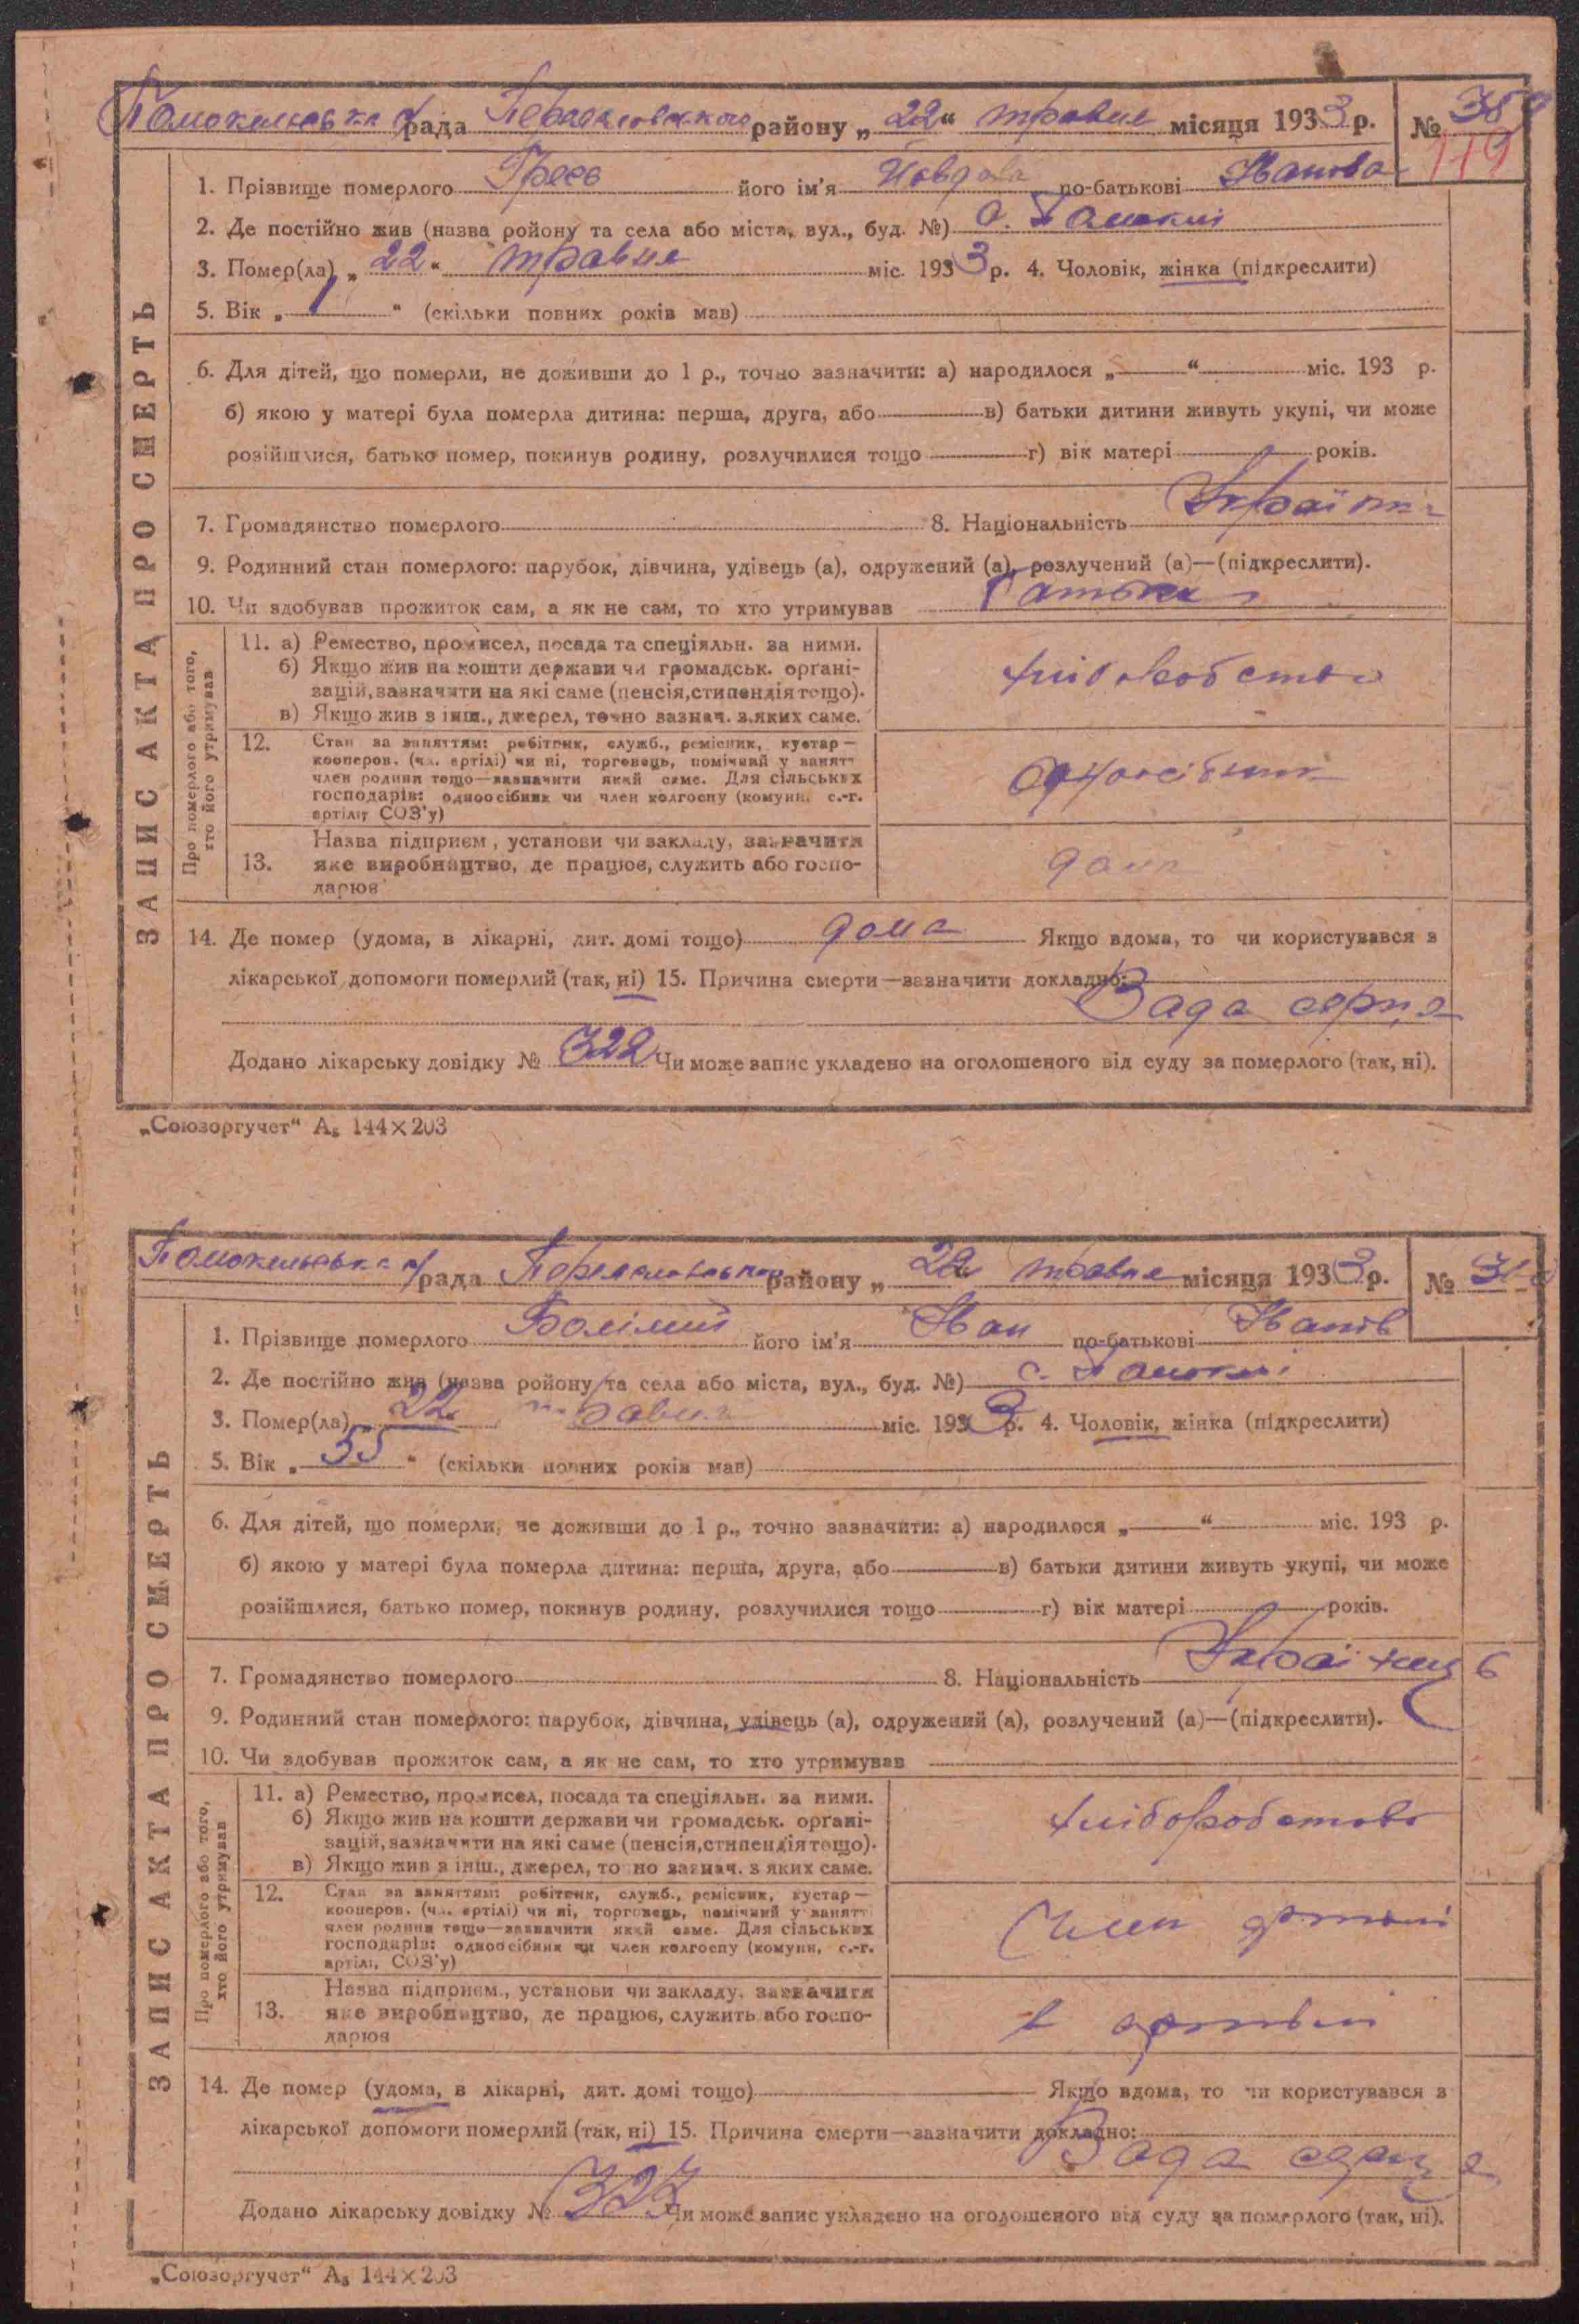 рада Переяславського району „ 22 “ травня місяця 1933 р. №
119
1. Прізвище померлого його ім'я по-батькові Іванова
2. Де постійно жив (назва ройону та села або міста, вул., буд. №) с.
3. Помер(ла) „ 22 “ травня міс. 1933 р. 4. Чоловік, жінка (підкреслити)
5. Вік „ 1 “ (скільки повних років мав)
6. Для дітей, що померли, не доживши до 1 р., точно зазначити: а) народилося „ “ міс. 193 р.
б) якою у матері була померла дитина: перша, друга, або в) батьки дитини живуть укупі, чи може
розійшлися, батько помер, покинув родину, розлучилися тощо г) вік матері років.
7. Громадянство померлого 8. Національність
9. Родинний стан померлого: парубок, дівчина, удівець (а), одружений (а), розлучений (а)—(підкреслити).
10. Чи здобував прожиток сам, а як не сам, то хто утримував
ЗАПИС АКТА ПРО СМЕРТЬ
Про померлого або того, хто його утримував
11. а) Ремество, промисел, посада та спеціяльн. за ними.
б) Якщо жив на кошти держави чи громадськ. орґані-
зацій, зазначити на які саме (пенсія, стипендія тощо).
в) Якщо жив з інш., джерел, точно зазнач. з яких саме.
хліборобство
12. Стан за заняттям: робітник, служб., ремісник, кустар—
кооперов. (чл. артілі) чи ні, торговець, помічний у занятт
член родини тощо—зазначити який саме. Для сільських
господарів: одноосібник чи член колгоспу (комуни, с.-г.
артілі, СОЗ'у)
одноосібник
13. Назва підприєм., установи чи закладу, зазначити
яке виробництво, де працює, служить або госпо-
дарює
дома
14. Де помер (удома, в лікарні, дит. домі тощо) дома Якщо вдома, то чи користувався з
лікарської допомоги померлий (так, ні) 15. Причина смерти—зазначити докладно:
Вада серця
Додано лікарську довідку № 322 Чи може запис укладено на оголошеного від суду за померлого (так, ні).
„Союзоргучет“ А₅ 144×203
рада району „ 22 травня місяця 1933 р. №
1. Прізвище померлого його ім'я Іван по-батькові Іванів
2. Де постійно жив (назва ройону та села або міста, вул., буд. №) с.
3. Помер(ла) „ 22 травня міс. 1933 р. 4. Чоловік, жінка (підкреслити)
5. Вік „ 55 “ (скільки повних років мав)
6. Для дітей, що померли, не доживши до 1 р., точно зазначити: а) народилося „ “ міс. 193 р.
б) якою у матері була померла дитина: перша, друга, або в) батьки дитини живуть укупі, чи може
розійшлися, батько помер, покинув родину, розлучилися тощо г) вік матері років.
7. Громадянство померлого 8. Національність Українець
9. Родинний стан померлого: парубок, дівчина, удівець (а), одружений (а), розлучений (а)—(підкреслити).
10. Чи здобував прожиток сам, а як не сам, то хто утримував
ЗАПИС АКТА ПРО СМЕРТЬ
Про померлого або того, хто його утримував
11. а) Ремество, промисел, посада та спеціяльн. за ними.
б) Якщо жив на кошти держави чи громадськ. орґані-
зацій, зазначити на які саме (пенсія, стипендія тощо).
в) Якщо жив з інш., джерел, точно зазнач. з яких саме.
хліборобство
12. Стан за заняттям: робітник, служб., ремісник, кустар—
кооперов. (чл. артілі) чи ні, торговець, помічний у занятт
член родини тощо—зазначити який саме. Для сільських
господарів: одноосібник чи член колгоспу (комуни, с.-г.
артілі, СОЗ'у)
Член артілі
13. Назва підприєм., установи чи закладу, зазначити
яке виробництво, де працює, служить або госпо-
дарює
в артілі
14. Де помер (удома, в лікарні, дит. домі тощо) Якщо вдома, то чи користувався з
лікарської допомоги померлий (так, ні) 15. Причина смерти—зазначити докладно:
Вада серця
Додано лікарську довідку № 323 Чи може запис укладено на оголошеного від суду за померлого (так, ні).
„Союзоргучет“ А₅ 144×203